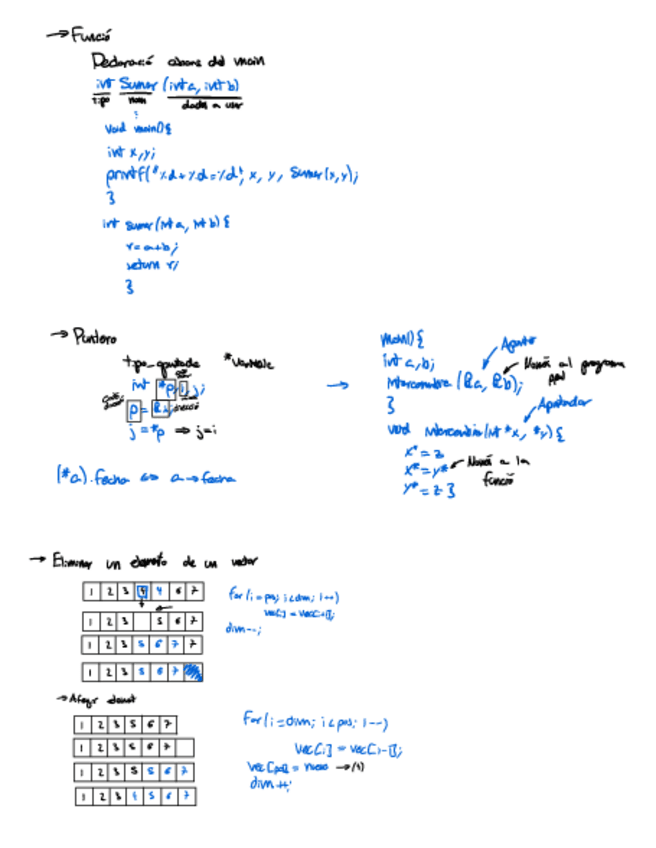 → Funció
Declaració abans del main
int Sumar (int a, int b)
tipo nom dades a usar
void main(){
int x,y;
printf("%d+%d=%d", x, y, Sumar(x,y);
}
int sumar(int a, int b) {
r=a+b;
return r;
}
→ Puntero
tipo_apuntado *variable
int *p, i, j;
p = &i;
j = *p ⇒ j=i
(*a).fecha ⇔ a→fecha
→
main() {
Apunta
int a, b;
Intercambia (&a, &b);
Només al programa ppal
}
Apuntador
void Intercambia(int *x, *y) {
x* = z
x* = y*
Només a la funció
y* = z }
→ Eliminar un elemento de un vector
1 2 3 4 4 6 7
1 2 3 5 6 7
1 2 3 5 6 7 7
1 2 3 5 6 7
for(i=pos; i<dim; i++)
vec[i] = vec[i+1];
dim--;
→ Afegir element
1 2 3 5 6 7
1 2 3 5 6 7
1 2 3 5 5 6 7
1 2 3 4 5 6 7
for(i=dim; i<pos; i--)
vec[i] = vec[i-1];
vec[pos] = nuevo →
dim++;